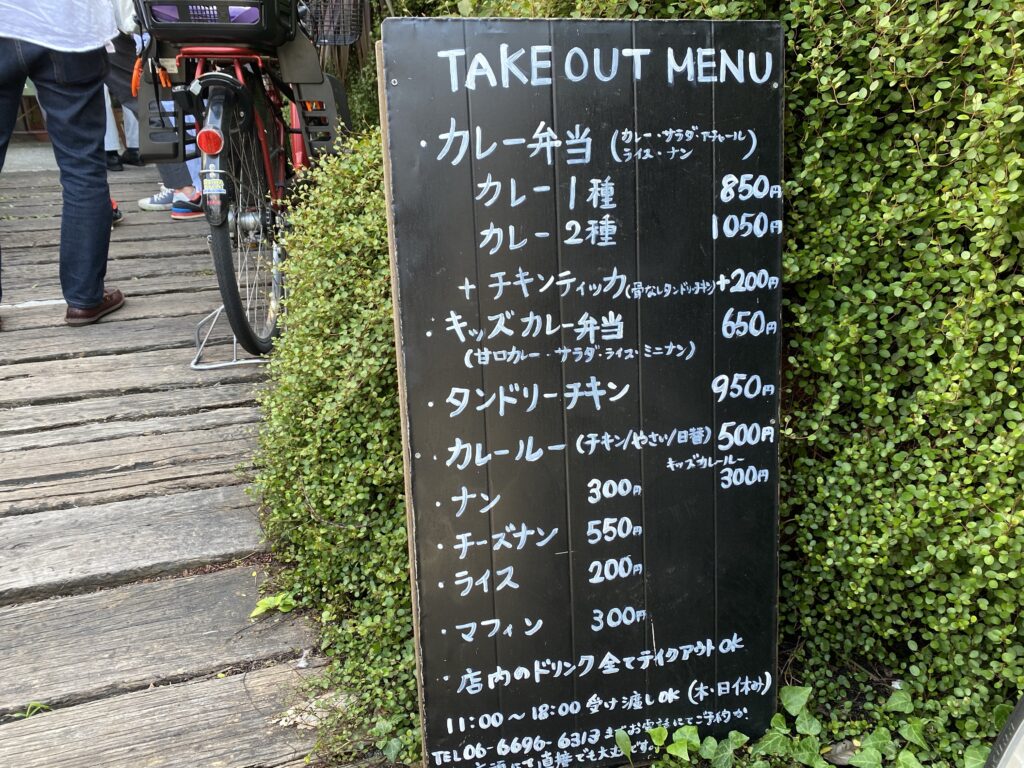 TAKE OUT MENU
・カレー弁当 (カレー・サラダ・アチャール ライス・ナン)
カレー1種 850円
カレー2種 1050円
+チキンティッカ(骨なしタンドリーチキン)+200円
・キッズカレー弁当 650円
(甘口カレー・サラダ・ライス・ミニナン)
・タンドリーチキン 950円
・カレールー(チキン/やさい/日替) 500円
キッズカレールー 300円
・ナン 300円
・チーズナン 550円
・ライス 200円
・マフィン 300円
・店内のドリンク全てテイクアウトOK
11:00〜18:00 受け渡しOK (木・日休み)
TEL06-6696-6313までお電話にて
直接でも大丈夫です。